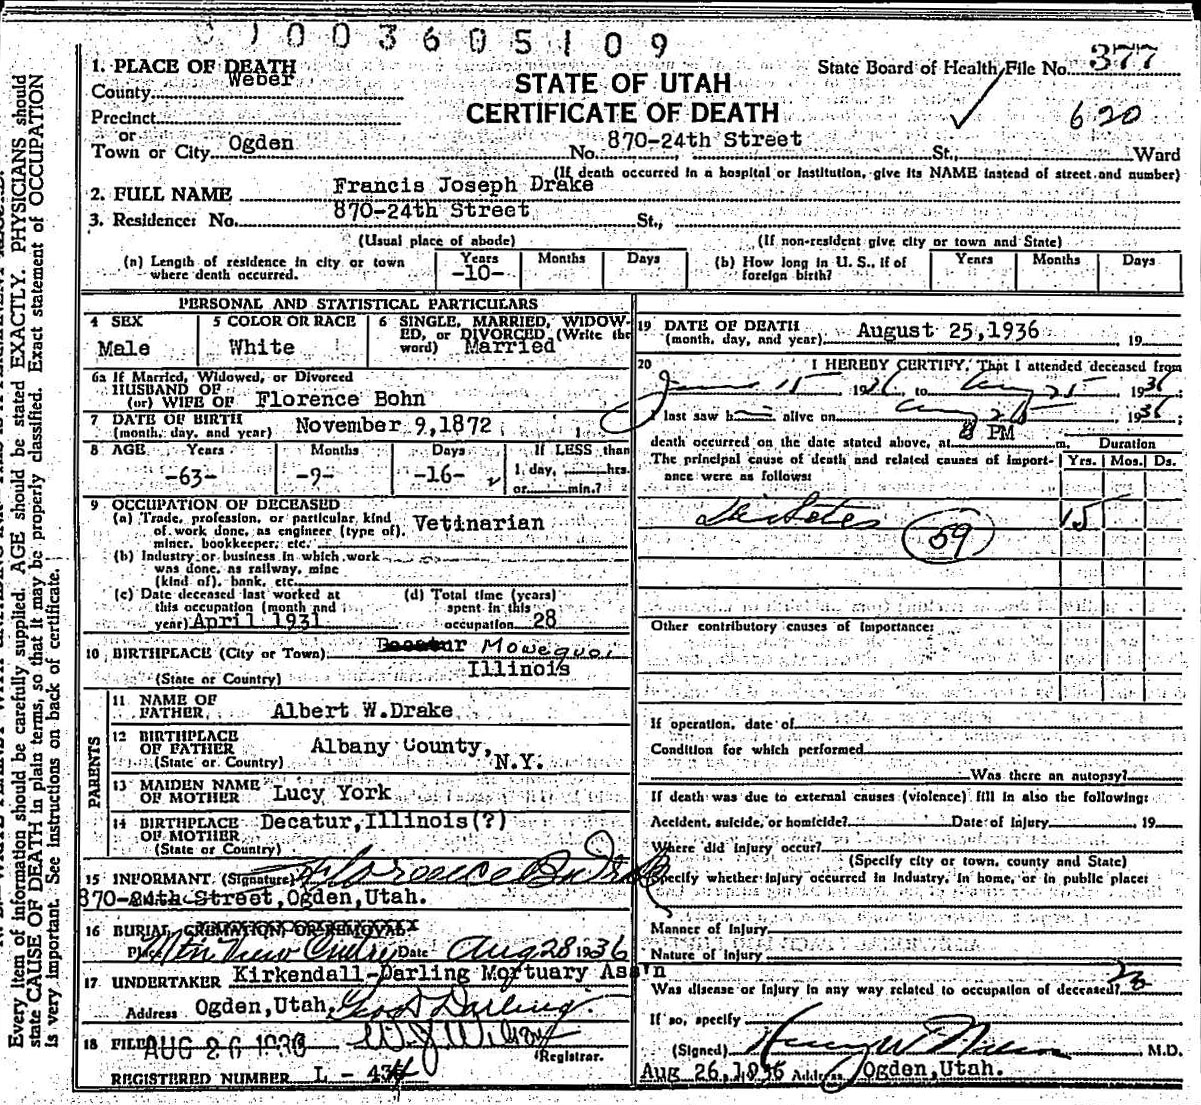 1003605109
1. PLACE OF DEATH
County Weber
Precinct
or
Town or City Ogden
STATE OF UTAH
CERTIFICATE OF DEATH
State Board of Health File No. 377
620
No. 870-24th Street St., Ward
(If death occurred in a hospital or institution, give its NAME instead of street and number)
2. FULL NAME Francis Joseph Drake
3. Residence: No. 870-24th Street St.,
(Usual place of abode) (If non-resident give city or town and State)
(a) Length of residence in city or town where death occurred. Years -10- Months Days
(b) How long in U. S., if of foreign birth? Years Months Days
PERSONAL AND STATISTICAL PARTICULARS
4 SEX
Male
5 COLOR OR RACE
White
6 SINGLE, MARRIED, WIDOW-
ED, or DIVORCED (Write the
word) Married
6a If Married, Widowed, or Divorced
HUSBAND OF
(or) WIFE OF Florence Bohn
7 DATE OF BIRTH
(month, day, and year) November 9,1872
8 AGE Years Months Days If LESS than
-63- -9- -16- 1, day, hrs.
or min.?
9 OCCUPATION OF DECEASED
(a) Trade, profession, or particular kind
of work done, as engineer (type of), Vetinarian
miner, bookkeeper, etc.
(b) Industry or business in which work
was done, as railway, mine
(kind of), bank, etc.
(c) Date deceased last worked at
this occupation (month and
year) April 1931
(d) Total time (years)
spent in this
occupation 28
10 BIRTHPLACE (City or Town) Decatur Mowequoi
(State or Country) Illinois
PARENTS
11 NAME OF
FATHER Albert W.Drake
12 BIRTHPLACE
OF FATHER Albany County,
(State or Country) N.Y.
13 MAIDEN NAME
OF MOTHER Lucy York
14 BIRTHPLACE Decatur,Illinois(?)
OF MOTHER
(State or Country)
15 INFORMANT (Signature) Florence B Drake
870-24th Street,Ogden,Utah.
16 BURIAL, CREMATION OR REMOVAL
Place Mtn View Cmtry Date Aug 28 1936
17 UNDERTAKER Kirkendall-Darling Mortuary Ass'n
Address Ogden,Utah, Geo S Darling
18 FILED AUG 26 1936
Registrar.
REGISTERED NUMBER L - 434
19 DATE OF DEATH
(month, day, and year) August 25,1936 19
20 I HEREBY CERTIFY, That I attended deceased from
June 15 1936 to Aug 25 1936;
I last saw h alive on Aug 25 1936;
8 PM
death occurred on the date stated above, at m. Duration
The principal cause of death and related causes of import-
ance were as follows: Yrs. Mos. Ds.
Diabetes 59 15
Other contributory causes of importance:
If operation, date of
Condition for which performed
Was there an autopsy?
If death was due to external causes (violence) fill in also the following:
Accident, suicide, or homicide? Date of Injury 19
Where did injury occur?
(Specify city or town, county and State)
Specify whether Injury occurred in Industry, in home, or in public place:
Manner of Injury
Nature of Injury
Was disease or Injury in any way related to occupation of deceased? No
If so, specify
(Signed) M.D.
Aug 26,1936 Address Ogden,Utah.
Every item of information should be carefully supplied. AGE should be stated EXACTLY. PHYSICIANS should
state CAUSE OF DEATH in plain terms, so that it may be properly classified. Exact statement of OCCUPATION
is very important. See instructions on back of certificate.